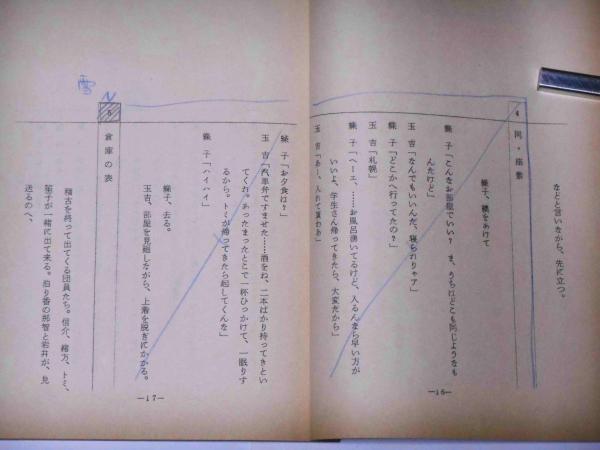 などと言いながら、先に立つ。
4 同・座敷
蝶子、襖をあけて
蝶子「こんなお部屋でいい？ ま、うちはどこも同じようなも
んだけど」
玉吉「なんでもいいんだ、寝られりゃア」
蝶子「どこかへ行ってたの？」
玉吉「札幌」
蝶子「ヘーエ、……お風呂湧いてるけど、入るんなら早い方が
いいよ、学生さん帰ってきたら、大変だから」
玉吉「あー、入れて貰わあ」
—16—
蝶子「お夕食は？」
玉吉「汽車弁ですませた……酒をね、二本ばかり持ってきとい
てくれ。あったまったとこで一杯ひっかけて、一眠りす
るから。トミが帰ってきたら起してくんな」
蝶子「ハイハイ」
蝶子、去る。
玉吉、部屋を見廻しながら、上着を脱ぎにかかる。
雪
N
5 倉庫の表
稽古を終って出てくる団員たち。信介、緒方、トミ、
笛子が一緒に出て来る。泊り番の那智と岩井が、見
送るのへ、
—17—